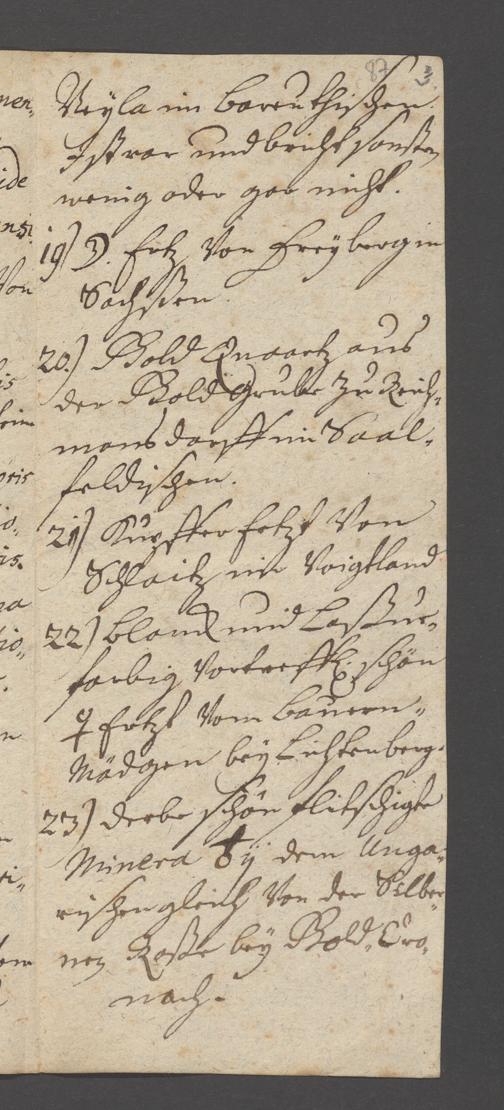 87 3.
Weyla im bareuthischen.
Ist rar und bricht sonsten
wenig oder gar nicht.
19) ☽. Ertz von Freyberg in
Sachssen.
20.) Gold Quaartz aus
der Gold Grube zu Reich-
mansdorff im Saal-
feldischen.
21) Kupffer Ertzt von
Schlaitz im Voigtland
22) blau und Lassur-
farbig vortreffl: schön
♀ Ertzt vom bauern-
Mädgen bey Lichtenberg.
23) derbe schön flitschigte
Minera ♁ij dem Unga-
rischen gleich von der Silber-
nen Roße bey Gold-Cro-
nach.